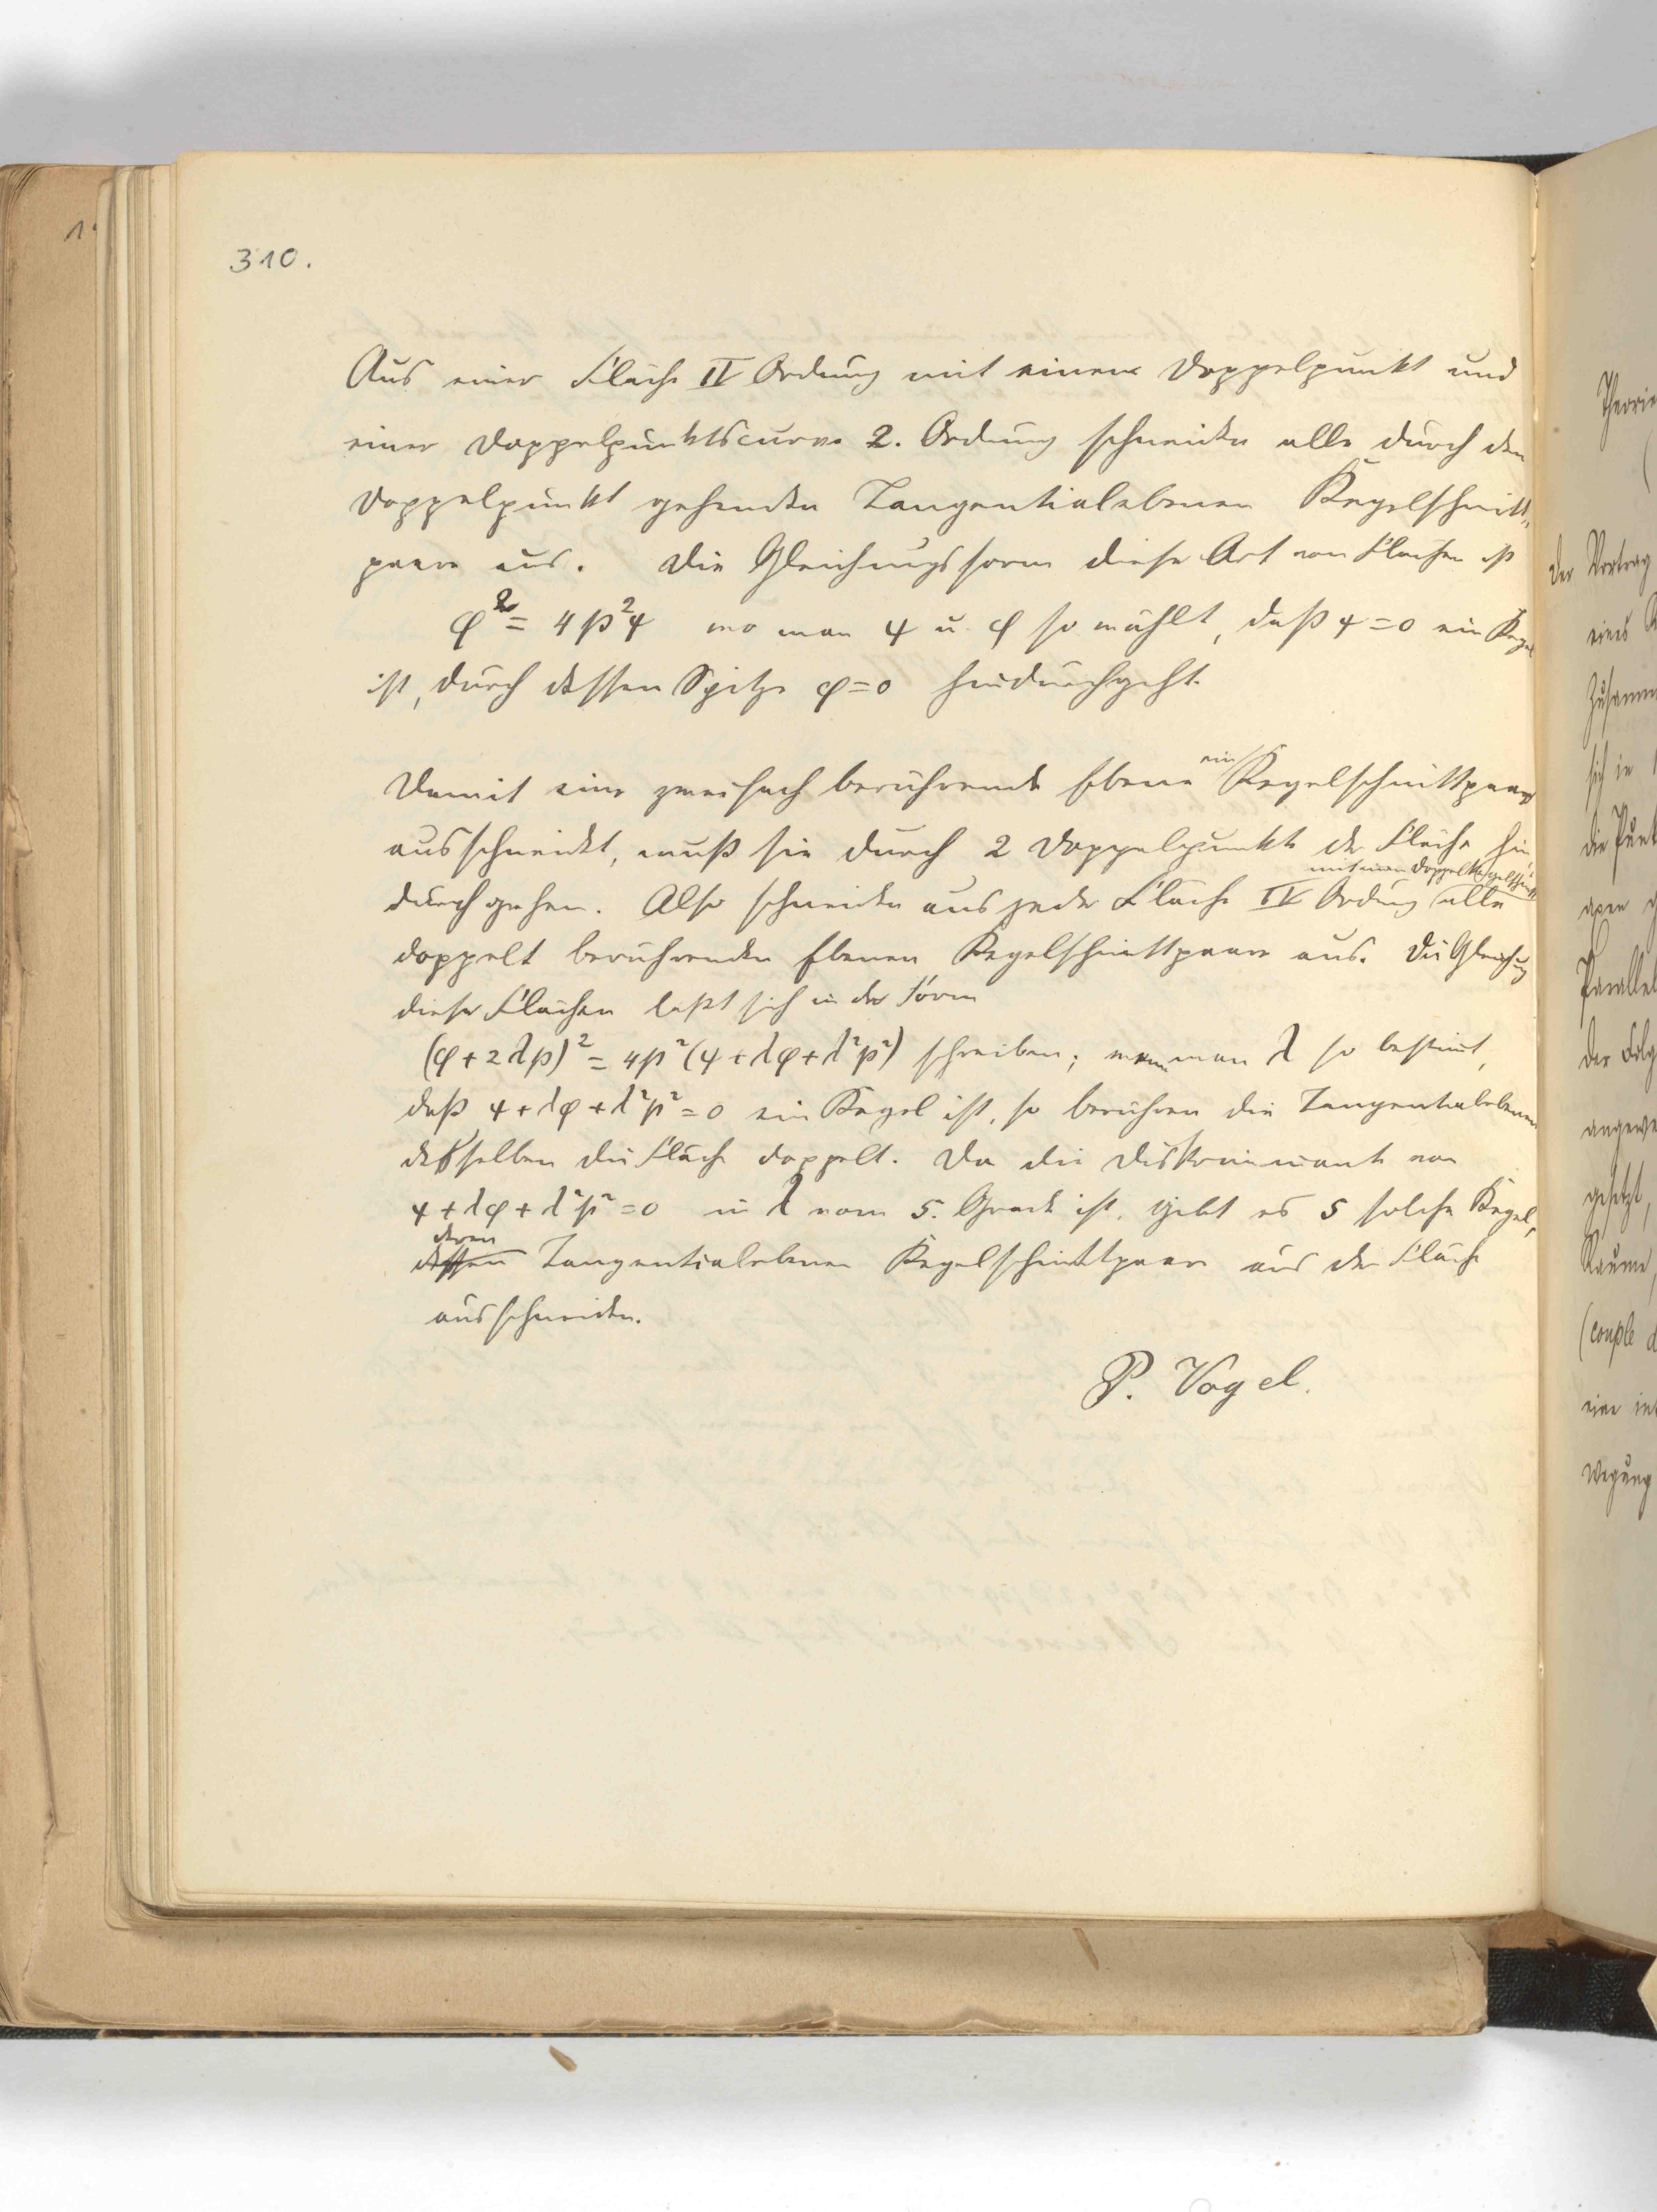 310.
Aus einer Fläche IV Ordnung mit einem Doppelpunkt und
einer Doppelpunktscurve 2. Ordnung schneiden alle durch den
Doppelpunkt gehenden Tangentialebenen Kegelschnitt-
paare aus. Die Gleichungsform dieser Art von Flächen ist
φ² = 4p²ψ wo man ψ u. φ so wählt, daß ψ=0 ein Kegel
ist, durch dessen Spitze φ=0 hindurchgeht.
Damit eine zweifach berührende Ebene ein Kegelschnittpaar
ausschneidet, muß sie durch 2 Doppelpunkte der Fläche hin-
durchgehen. Also schneiden aus jeder Fläche IV Ordnung mit einem Doppelkegelschnitt alle
doppelt berührenden Ebenen Kegelschnittpaare aus. Die Gleichung
dieser Flächen läßt sich in der Form
(φ + 2λp)² = 4p²(ψ + λφ + λ²p²) schreiben; wenn man λ so bestimt,
daß ψ + λφ + λ²p² = 0 ein Kegel ist, so berühren die Tangentialebenen
desselben die Fläche doppelt. Da die Diskriminante von
ψ + λφ + λ²p² = 0 in λ vom 5. Grade ist, gibt es 5 solche Kegel,
deren Tangentialebenen Kegelschnittpaare aus der Fläche
ausschneiden.
P. Vogel.
Theorie
Der Vortrag
eines
Zusamm
sich in
die Punk
axen
Parallel
der Folg
angewe
gesetzt,
Raume,
(couple d
eine
wegung